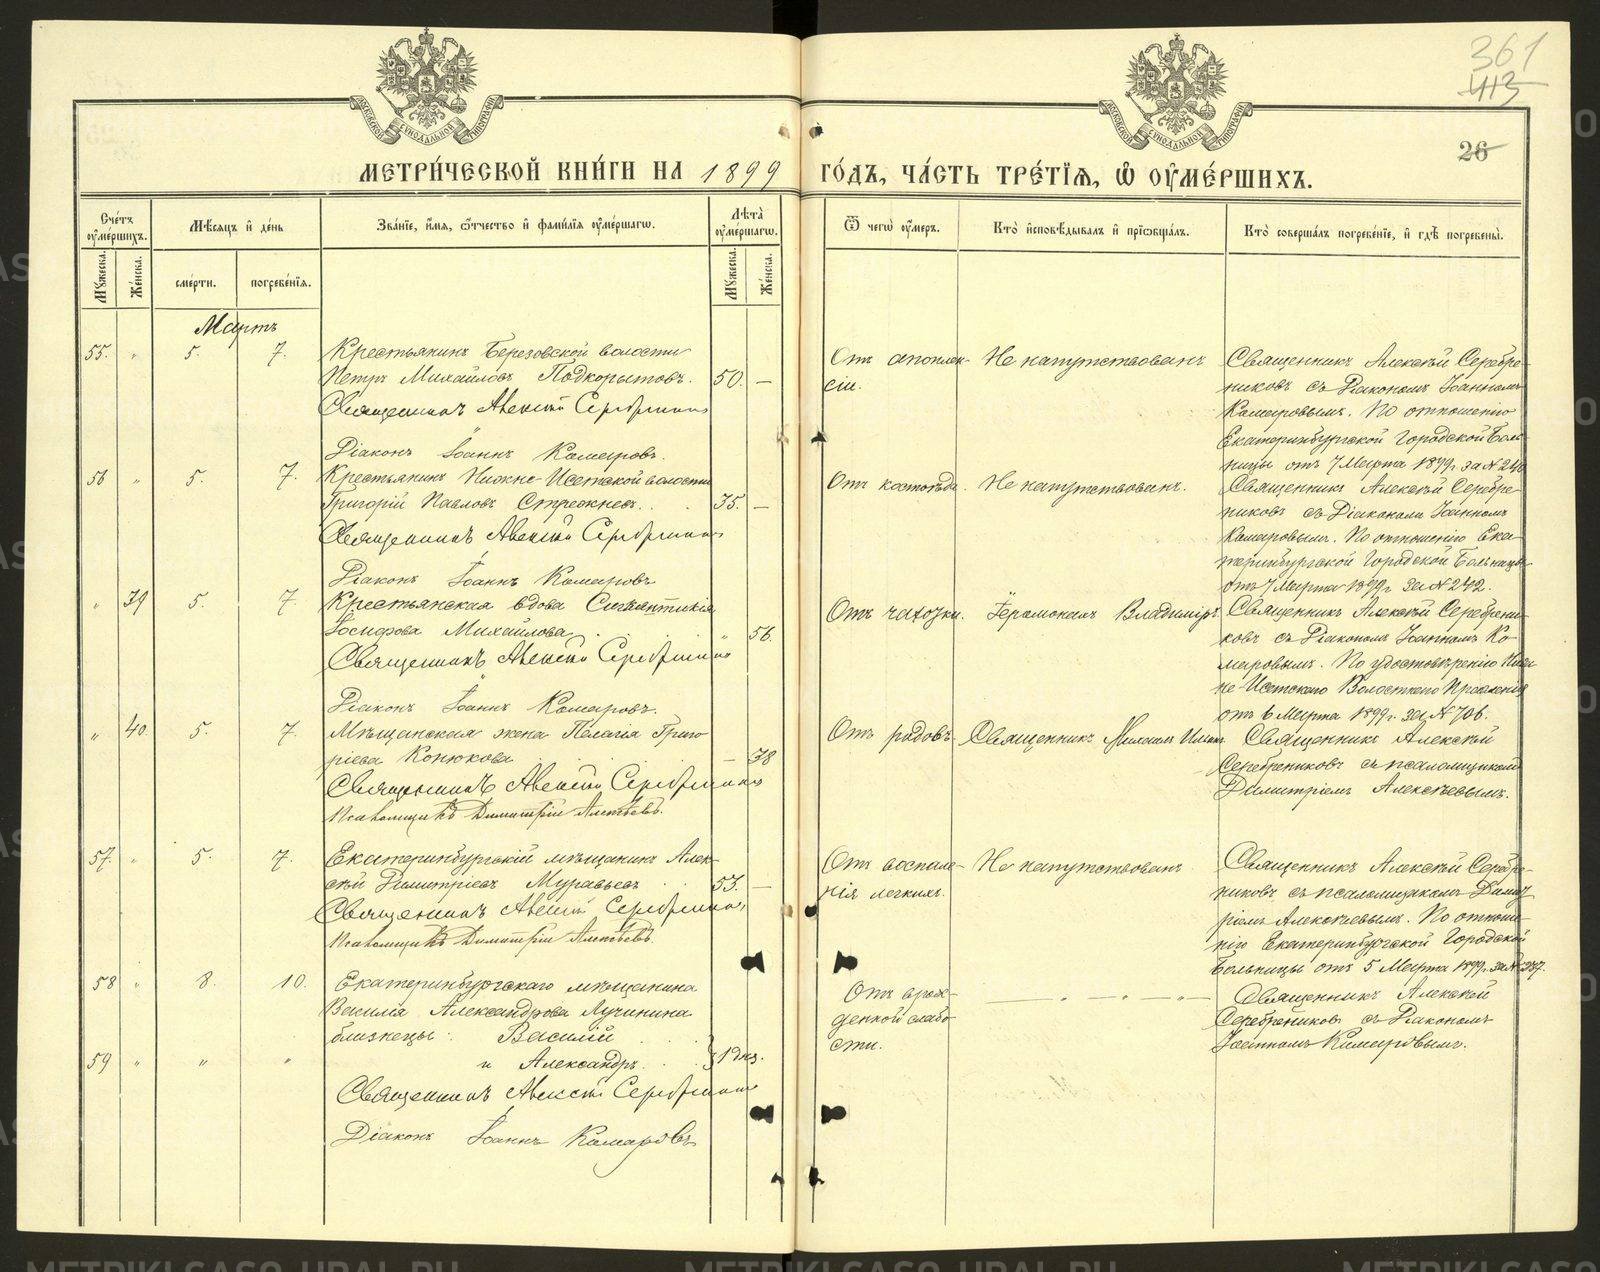 361
413
26
МЕТРИ́ЧЕСКОЙ КНИ́ГИ НА 1899 ГО́ДЪ, ЧА́СТЬ ТРЕ́ТІѦ, Ѡ҆ ОУ҆МЕ́РШИХЪ.
Сче́тъ оу҆ме́ршихъ.
Мѣ́сяцъ и҆ де́нь
Зва́ніе, и҆́мя, ѻ҆́тчество и҆ фами́лія оу҆ме́ршагѡ.
Лѣта̀ оу҆ме́ршагѡ.
Ѿ чегѡ̀ оу҆́меръ.
Кто̀ и҆сповѣ́дывалъ и҆ прїѡбща́лъ.
Кто̀ соверша́лъ погребе́ніе, и҆ гдѣ̀ погребены̀.
Му́жеска.
Же́нска.
сме́рти.
погребе́нія.
Му́жеска.
Же́нска.
Мартъ
55. " 5. 7.
Крестьянинъ Березовской волости
Петръ Михайловъ Подкорытовъ. 50. —
Священникъ Алексій Серебренниковъ
Діаконъ Іоаннъ Комаровъ.
Отъ апоплек-
сіи.
Не напутствованъ
Священникъ Алексѣй Серебре-
никовъ съ Діакономъ Іоанномъ
Комаровымъ. По отношенію
Екатеринбургской Городской Боль-
ницы отъ 7 Марта 1899 г. за №240
56 " 5. 7.
Крестьянинъ Нижне-Исетской волости
Григорій Павловъ Стрежневъ. 35. —
Священникъ Алексій Серебренниковъ
Діаконъ Іоаннъ Комаровъ
Отъ костоѣды.
Не напутствованъ.
Священникъ Алексѣй Серебре-
никовъ съ Діакономъ Іоанномъ
Комаровымъ. По отношенію Ека-
теринбургской Городской Больницы
отъ 7 Марта 1899 г. за №242.
" 39 5. 7.
Крестьянская вдова
Іосифова Михайлова " 56.
Священникъ Алексій Серебренниковъ
Діаконъ Іоаннъ Комаровъ.
Отъ чахотки.
Іеромонахъ Владиміръ.
Священникъ Алексѣй Серебрени-
ковъ съ Діакономъ Іоанномъ Ко-
маровымъ. По удостовѣренію Ниж-
не-Исетскаго Волостнаго Правленія
отъ 6 Марта 1899 г. за №706.
" 40. 5. 7.
Мѣщанская жена Пелагія Григо
ріева Конюхова — 38
Священникъ Алексій Серебренниковъ
Псаломщикъ Димитрій Алексѣевъ.
Отъ родовъ
Священникъ Михаилъ
Священникъ Алексѣй
Серебрениковъ съ псаломщикомъ
Димитріемъ Алексѣевымъ.
57. " 5. 7.
Екатеринбургскій мѣщанинъ Алек-
сѣй Димитріевъ Муравьевъ 53. —
Священникъ Алексій Серебренниковъ
Псаломщикъ Димитрій Алексѣевъ.
Отъ воспале-
нія легкихъ.
Не напутствованъ
Священникъ Алексѣй Серебре-
никовъ съ псаломщикомъ Димит
ріемъ Алексѣевымъ. По отноше-
нію Екатеринбургской Городской
Больницы отъ 5 Марта 1899 г. за №237.
58 " 8. 10.
Екатеринбургскаго мѣщанина
Василія Александрова Лучинина
близнецы: Василій
59 " " "
и Александръ. } 1 дня.
Священникъ Алексій Серебренниковъ
Діаконъ Іоаннъ Комаровъ
Отъ врож-
денной слабо-
сти.
— " — " — " —
Священникъ Алексѣй
Серебрениковъ съ Діакономъ
Іоанномъ Комаровымъ.